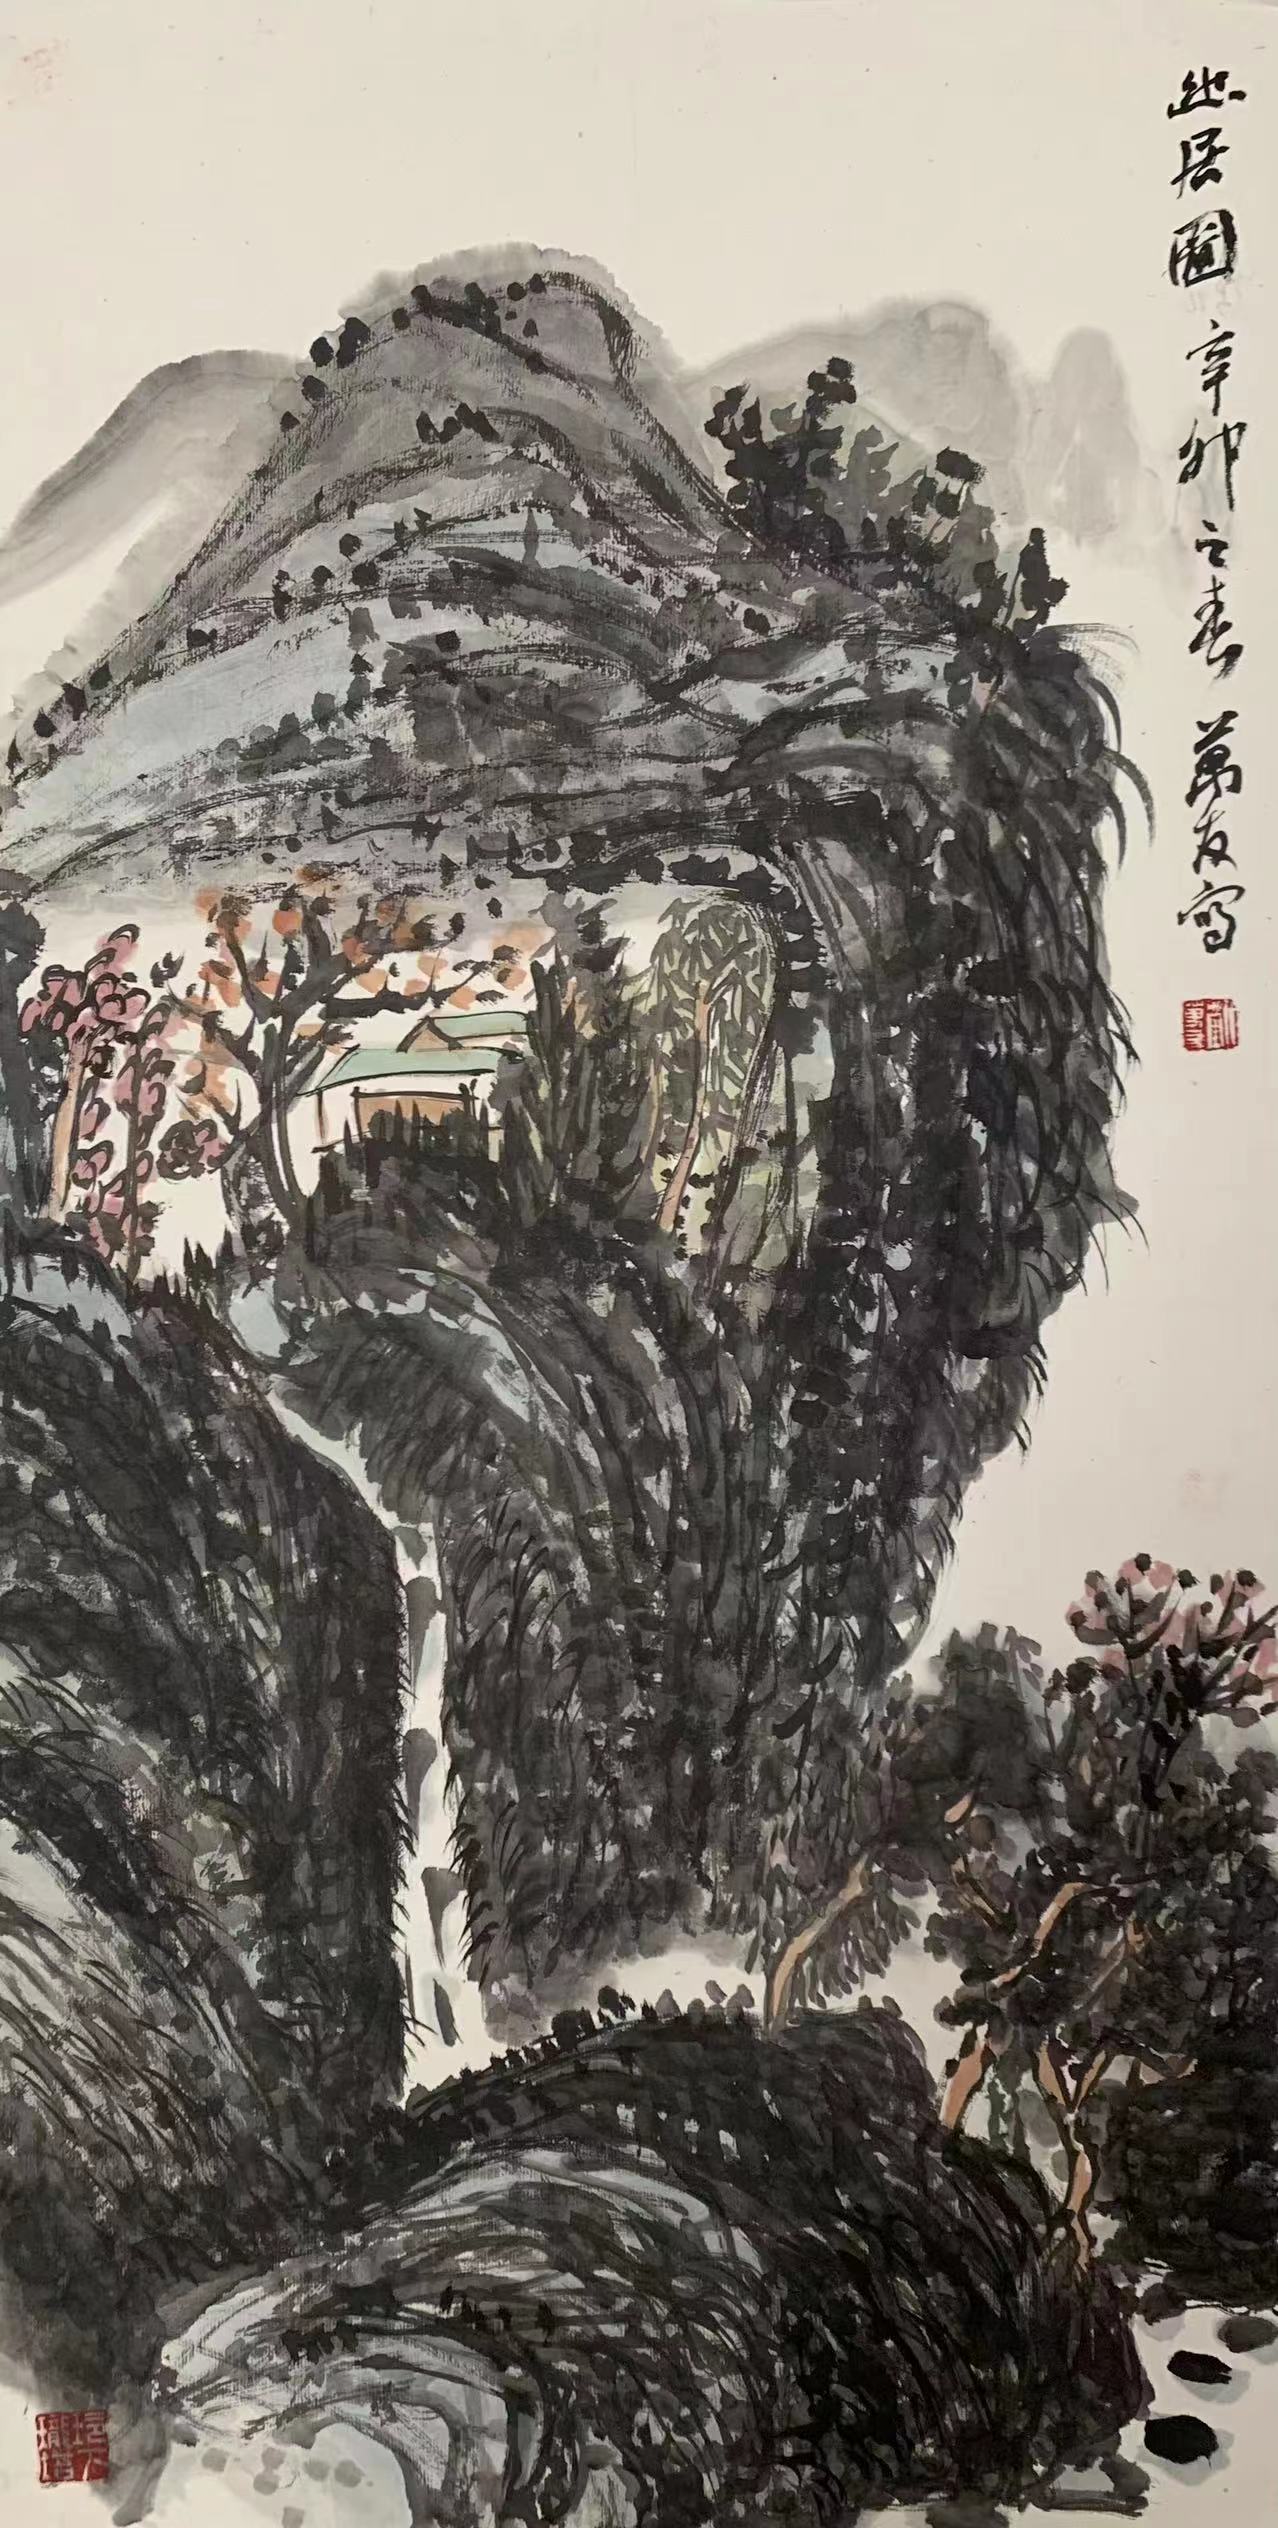 幽居圖 辛卯之春 萬友寫